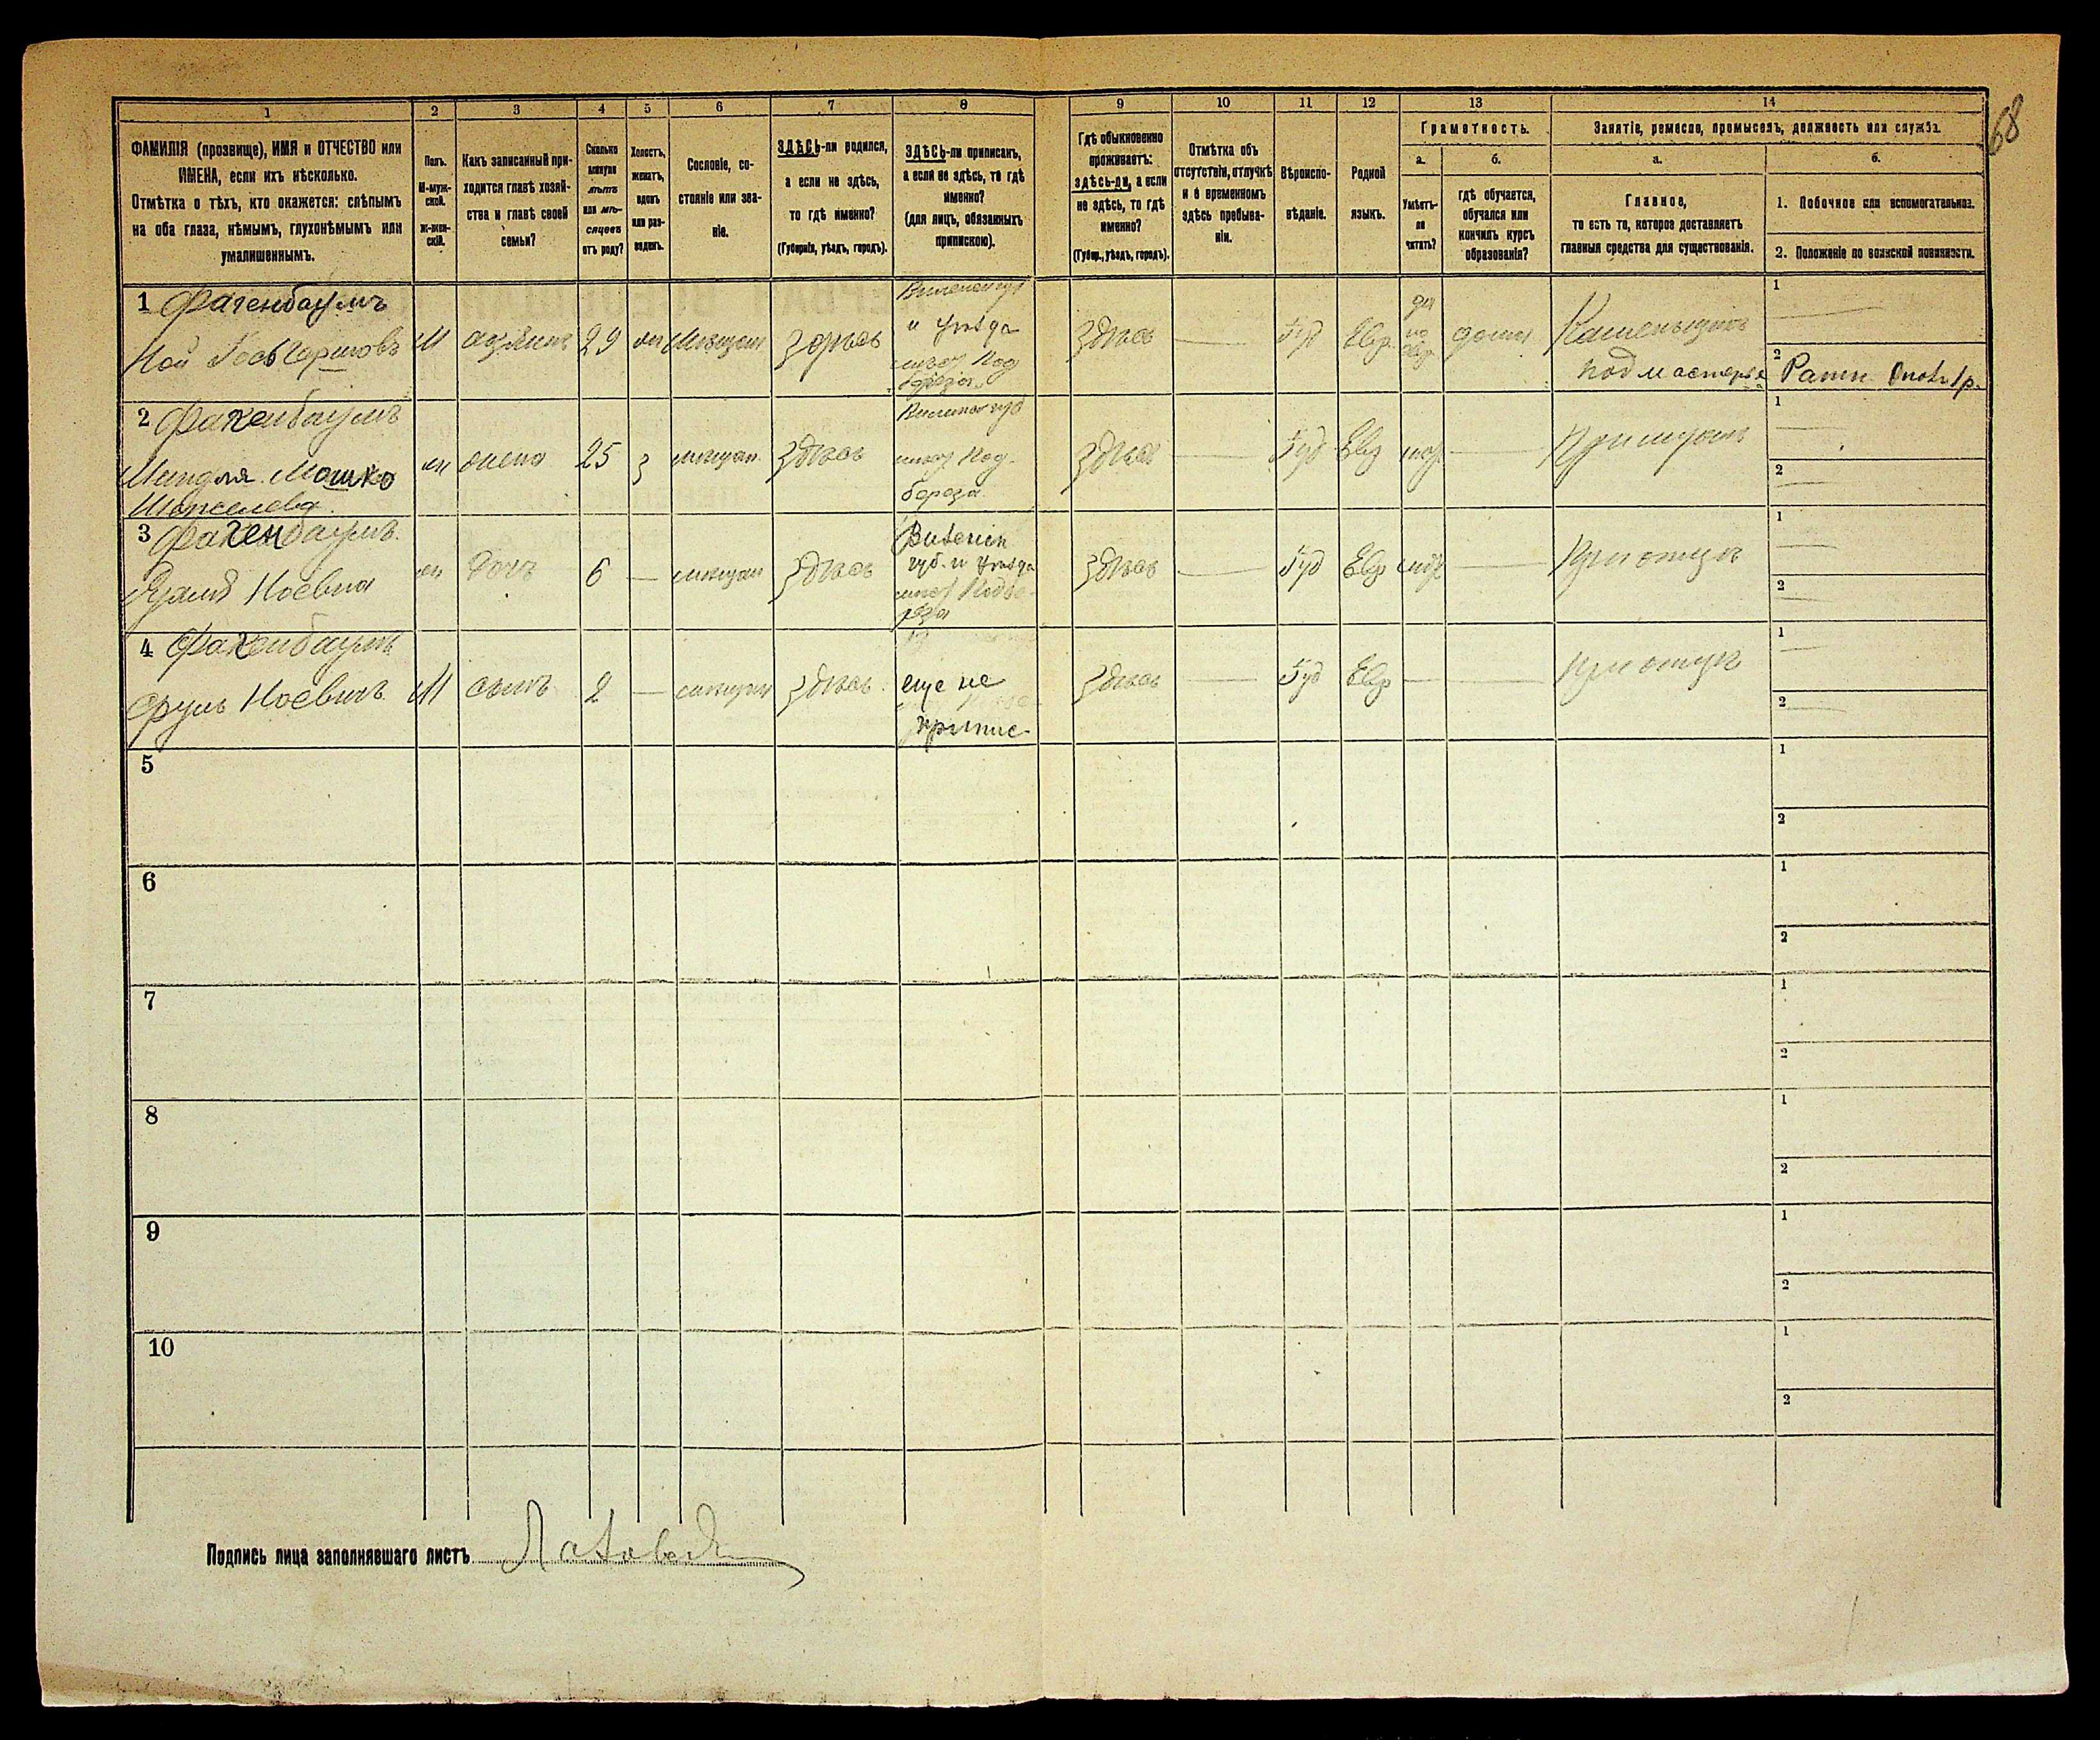 68
1 2 3 4 5 6 7 8 9 10 11 12 13 14
ФАМИЛІЯ (прозвище), ИМЯ и ОТЧЕСТВО или
ИМЕНА, если ихъ нѣсколько.
Отмѣтка о тѣхъ, кто окажется: слѣпымъ
на оба глаза, нѣмымъ, глухонѣмымъ или
умалишеннымъ.
Полъ.
М-муж-
ской.
Ж-жен-
скій.
Какъ записанный при-
ходится главѣ хозяй-
ства и главѣ своей
семьи?
Сколько
минуло
лѣтъ
или мѣ-
сяцевъ
отъ роду?
Холостъ,
женатъ,
вдовъ
или раз-
веденъ.
Сословіе, со-
стояніе или зва-
ніе.
ЗДѢСЬ-ли родился,
а если не здѣсь,
то гдѣ именно?
(Губернія, уѣздъ, городъ).
ЗДѢСЬ-ли приписанъ,
а если не здѣсь, то гдѣ
именно?
(для лицъ, обязанныхъ
припискою).
Гдѣ обыкновенно
проживаетъ:
здѣсь-ли, а если
не здѣсь, то гдѣ
именно?
(Губер., уѣздъ, городъ).
Отмѣтка объ
отсутствіи, отлучкѣ
и о временномъ
здѣсь пребыва-
ніи.
Вѣроиспо-
вѣданіе.
Родной
языкъ.
Грамотность.
а.
Умѣетъ-
ли
читать?
б.
гдѣ обучается,
обучался или
кончилъ курсъ
образованія?
Занятіе, ремесло, промыселъ, должность или служба.
а.
Главное,
то есть то, которое доставляетъ
главныя средства для существованія.
б.
1. Побочное или вспомогательное.
2. Положеніе по воинской повинности.
1 Фагенбаумъ
Ной
М
хозяинъ
29
жн
Мѣщан.
Здѣсь
Виленск губ
и уѣзда
мѣст Под
береза
Здѣсь
Іуд
Евр.
да
по
евр
дома
Каменьщикъ
подмастерье
1
2
Ратн
2 Фагенбаумъ
Мошко
жн
жена
25
з
мѣщан.
Здѣсь
Виленск губ
мѣст Под-
береза
Здѣсь
Іуд
Евр
При мужѣ
1
2
3 Фагенбаумъ.
Ноевна
жн
дочь
6
мѣщан
Здѣсь
Виленск
губ. и уѣзда
мѣст Подбе-
реза
Здѣсь
Іуд
Евр
При отцѣ
1
2
4 Фагенбаумъ
Ноевичъ
М
сынъ
2
мѣщан
Здѣсь.
еще не
припис-
Здѣсь
Іуд
Евр
При отцѣ
1
2
5
1
2
6
1
2
7
1
2
8
1
2
9
1
2
10
1
2
Подпись лица заполнявшаго листъ